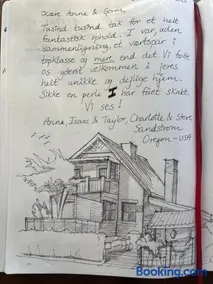 Kære Anne & Gorm,
Tusind tusind tak for et helt
fantastisk ophold. I var uden
sammenligning, et værtspar i
topklasse og mere end det. Vi følte
os yderst velkommen i jeres
helt unikke og dejlige hjem.
Sikke en perle I har fået skabt.
Vi ses!
Anna, Isaac & Taylor, Charlotte & Steve
Sandstrom
Oregon - USA
Booking.com